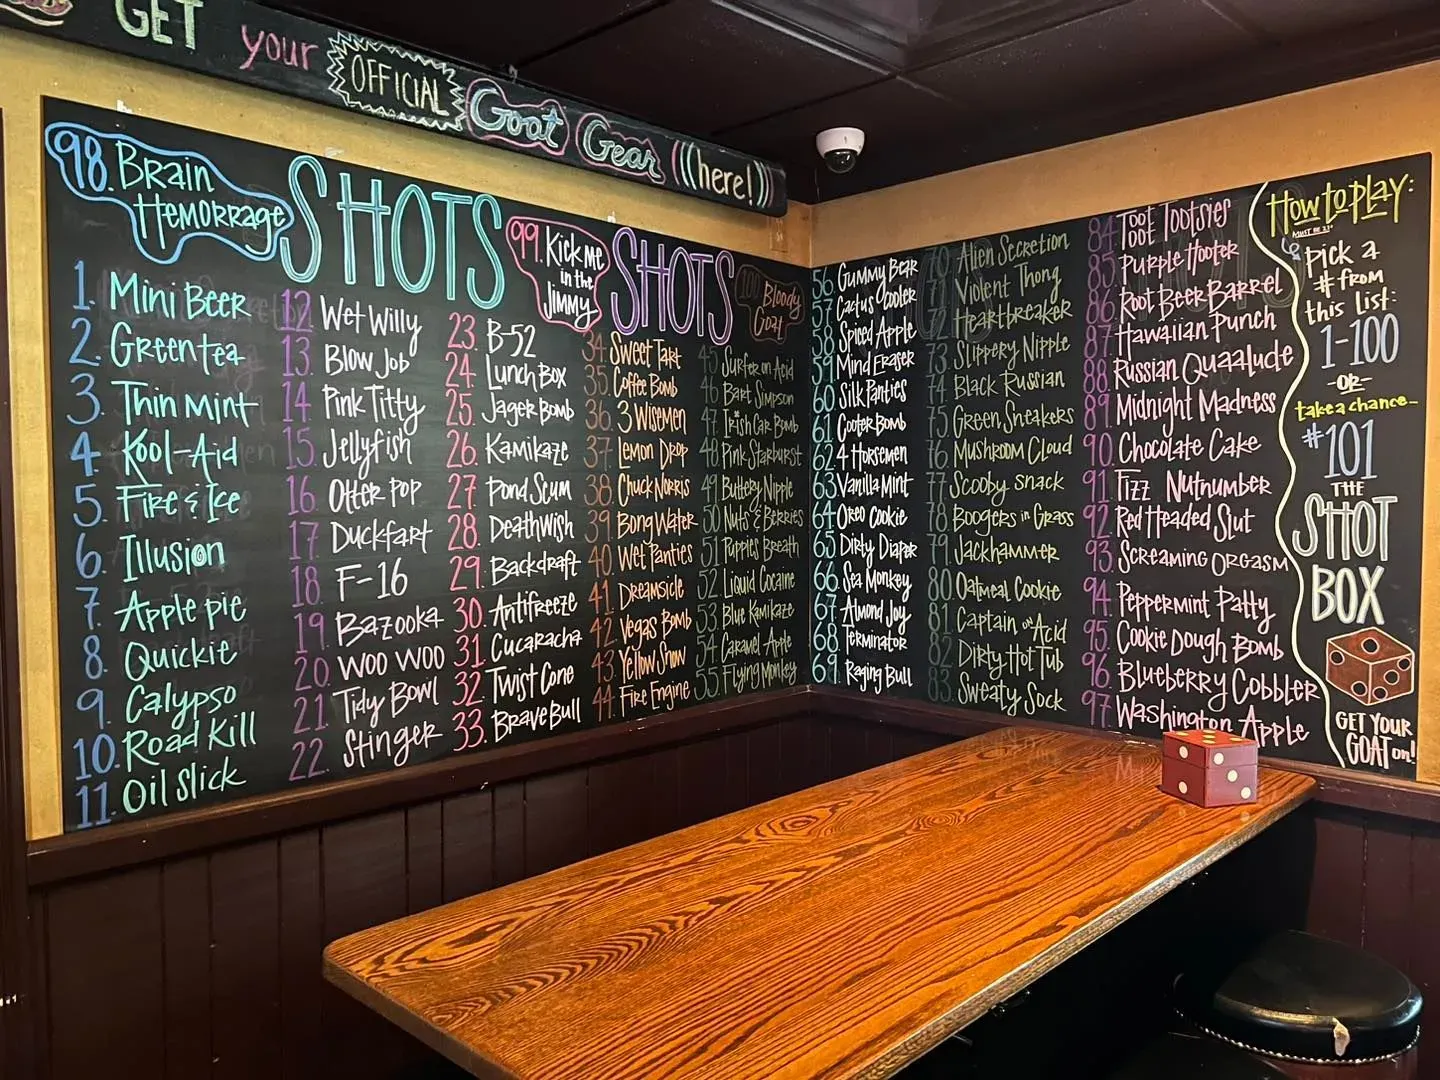 GET your OFFICIAL Goat Gear ((here!))
98. Brain
Hemorrage
SHOTS
99. Kick me
in the
Jimmy
SHOTS
100 Bloody
Goat
1. Mini Beer
2. Green tea
3. Thin Mint
4. Kool-Aid
5. Fire & Ice
6. Illusion
7. Apple pie
8. Quickie
9. Calypso
10. Road Kill
11. Oil Slick
12. Wet Willy
13. Blow Job
14. Pink Titty
15. Jellyfish
16. Otter Pop
17. Duckfart
18. F-16
19. Bazooka
20. Woo Woo
21. Tidy Bowl
22. Stinger
23. B-52
24. Lunch Box
25. Jager Bomb
26. Kamikaze
27. Pond Scum
28. Deathwish
29. Backdraft
30. Antifreeze
31. Cucaracha
32. Twist Cone
33. Brave Bull
34. Sweet Tart
35. Coffee Bomb
36. 3 Wisemen
37. Lemon Drop
38. Chuck Norris
39. Bong Water
40. Wet Panties
41. Dreamsicle
42. Vegas Bomb
43. Yellow Snow
44. Fire Engine
45 Surfer on Acid
46 Bart Simpson
47. Irish Car Bomb
48. Pink Starburst
49 Buttery Nipple
50 Nuts & Berries
51 Puppies Breath
52 Liquid Cocaine
53 Blue Kamikaze
54. Caramel Apple
55. Flying Monkey
56 Gummy Bear
57 Cactus Cooler
58 Spiced Apple
59 Mind Eraser
60 Silk Panties
61 Cooter Bomb
62 4 Horsemen
63 Vanilla Mint
64 Oreo Cookie
65 Dirty Diaper
66 Sea Monkey
67 Almond Joy
68 Terminator
69. Raging Bull
70. Alien Secretion
71 Violent Thong
72 Heartbreaker
73 Slippery Nipple
74 Black Russian
75 Green Sneakers
76 Mushroom Cloud
77 Scooby snack
78. Boogers in Grass
79. Jackhammer
80. Oatmeal Cookie
81 Captain on Acid
82 Dirty Hot Tub
83. Sweaty Sock
84 Toot Tootsies
85 Purple Hooter
86 Root Beer Barrel
87 Hawaiian Punch
88 Russian Quaalude
89 Midnight Madness
90. Chocolate Cake
91 Fizz Nutnumber
92 Red Headed Slut
93. Screaming Orgasm
94 Peppermint Patty
95. Cookie Dough Bomb
96 Blueberry Cobbler
97. Washington Apple
How to Play:
MUST BE 21+
pick a
# from
this list:
1-100
-OR-
take a chance-
#101
THE
SHOT
BOX
GET YOUR
GOAT on!